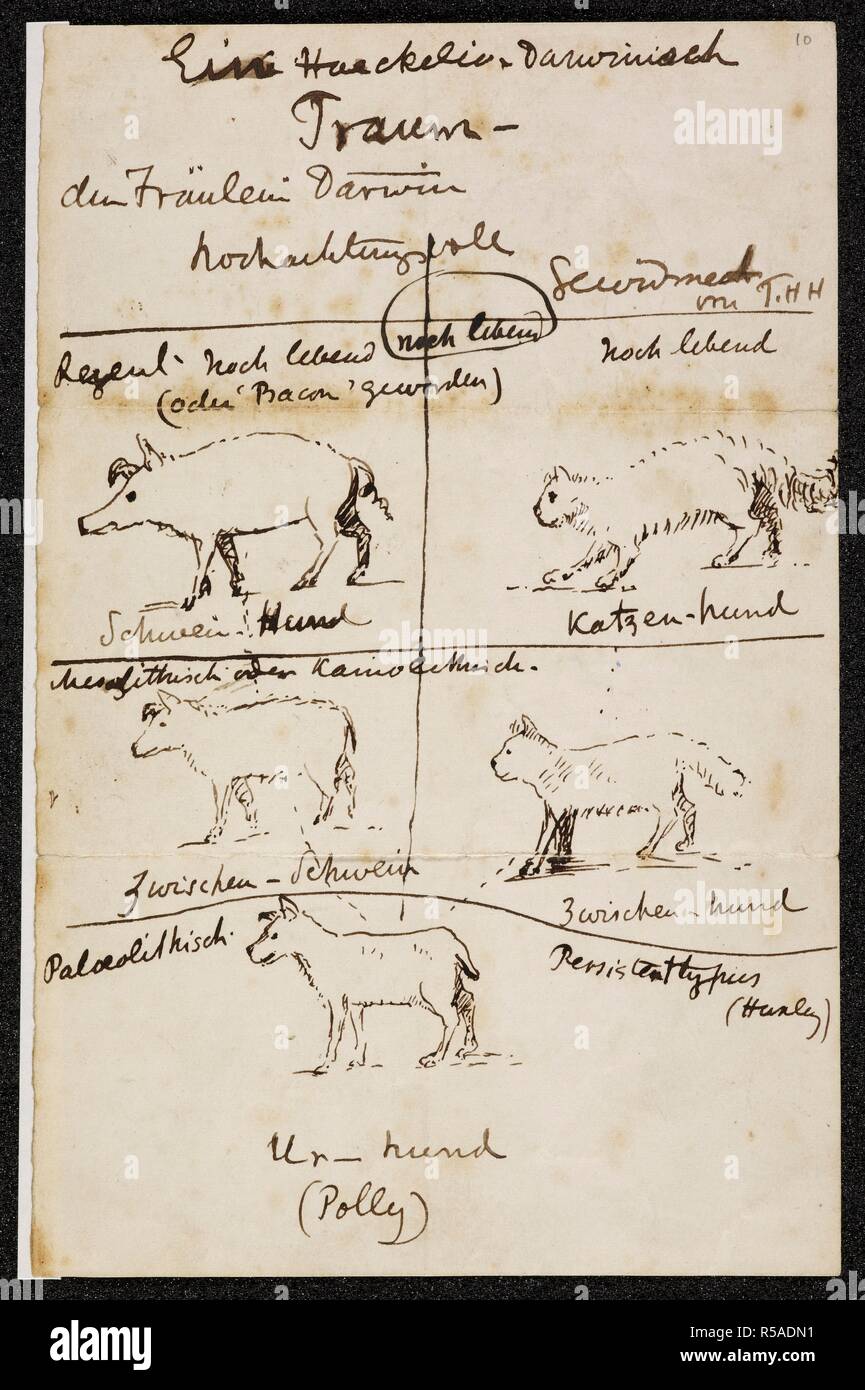 10
Eine Haeckelio-Darwinisch
Traum-
dem Fräulein Darwin
hochachtungsvoll
Gewidmet
von T.H H
Rezent. noch lebend
(oder 'Bacon' geworden)
noch lebend
noch lebend
Schwein-Hund
Katzen-hund
Mesolithisch oder Kainolithisch.
Zwischen-Schwein
Zwischen-hund
Palæolithisch.
Persistent typus
(Huxley)
Ur-hund
(Polly)
alamy
alamy
alamy
alamy
alamy
alamy
Image ID: R5ADN1
www.alamy.com